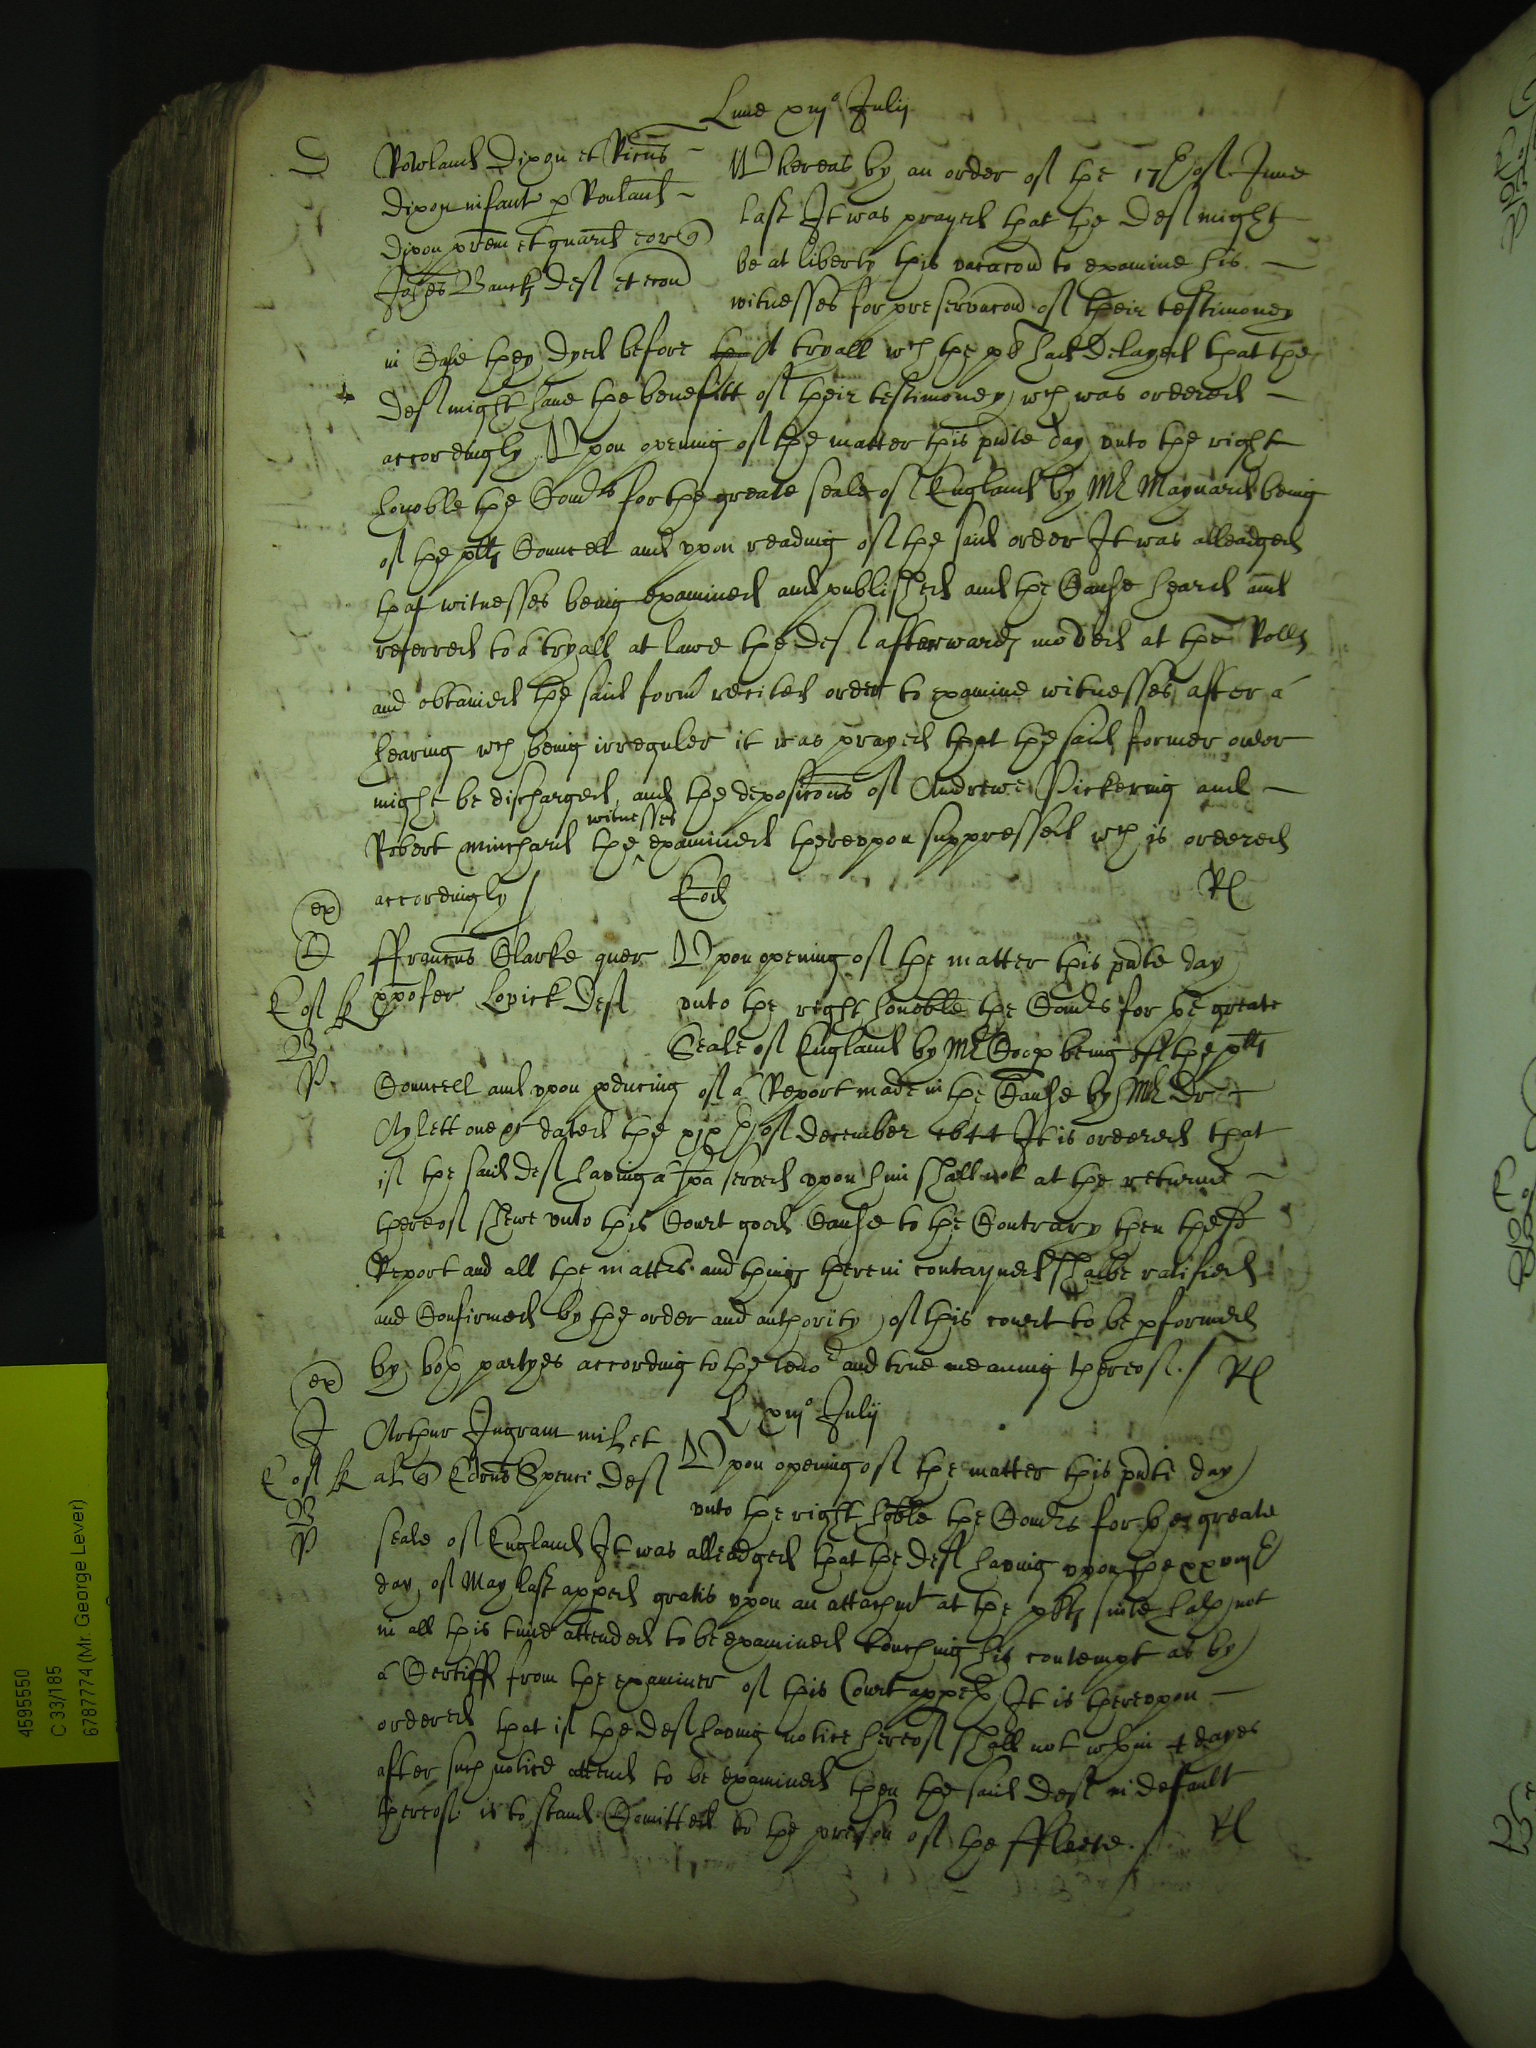 Lune xiijo Julij
D Rowland Dixon et Ricus
Dixon infant p Rouland
Dixon prem et guard
Jacob Banck Def et econ
Whereas by an order of the 17th of June
last It was prayed that the Def might
be at liberty this vacacon to examine his
witnesses for preservacon of their testimoney
in Case they dyed before A tryall wch the plt had delayed that the
Def might have the benefitt of their testimoney wch was ordered
accordingly Upon opening of the matter this pnte day unto the right
honoble the Comrs for the greate seale of England by Mr Maynard being
of the plts Councell and upon reading of the said order It was alleadged
that witnesses being examined and published and the Cause heard and
referred to a tryall at lawe the Def afterwards moved at the Rolls
and obtained the said form recited order to examine witnesses after a
hearing wch being irreguler it was prayed that the said former order
might be discharged, and the deposicons of Andrewe Pickering and
Robert Minchard the witnesses examined thereupon suppressed wch is ordered
accordingly / Rl
ex
C ffrancus Clarke quer
xpofer Lopick Def
Upon opening of the matter this pnte day
unto the right honoble the Comrs for ye greate
Seale of England by Mr being of the plts
Councell and upon pducing of a Report made in the Cause by Mr Dr
Aylett one &c dated the xixth of december 1644 It is ordered that
if the said Def having a spa served upon him shall not at the returne
thereof shewe unto this Court good Cause to the Contrary then the sd
Report and all the matters and things therein contayned shalbe ratified
and Confirmed by the order and authority of this court to be pformed
by both partyes according to the teno and true meaning thereof. / Rl
ex
L xiijo Julij
J Arthur Ingram mil et
al q Spenc Def
Upon opening of the matter this pnte day
unto the right hoble the Comrs for ye greate
seale of England It was alleadged that the Def having upon the xxviijth
day of May last apped gratis upon an attachmt at the plts suite hath not
in all this time attended to be examined touching his contempt as by
a Certiff from the examiner of this Court appeth It is thereupon
ordered that if the Def having notice hereof shall not wthin 4 dayes
after such notice attend to be examined then the said Def in default
thereof is to stand Comitted to the prison of the ffleete. / Rl
4595550
C 33/185
6787774 (Mr. George Lever)